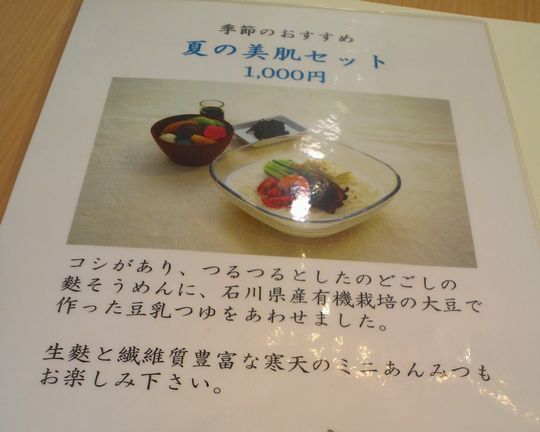 季節のおすすめ
夏の美肌セット
1,000円
コシがあり、つるつるとしたのどごしの
麩そうめんに、石川県産有機栽培の大豆で
作った豆乳つゆをあわせました。
生麩と繊維質豊富な寒天のミニあんみつも
お楽しみ下さい。